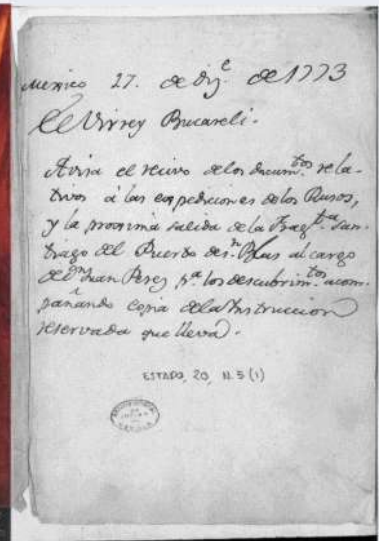 Mexico 27. de Diz.e de 1773
El Virrey Bucareli.
Avisa el recivo de los docum.tos rela-
tivos á las expediciones de los Rusos,
y la proxima salida de la Frag.ta San-
tiago del Puerto de S.n Blas al cargo
de D.n Juan Perez p.a los descubrim.tos acom-
pañando copia de la Instruccion
reservada que lleva.
ESTADO, 20, N. 5 (1)